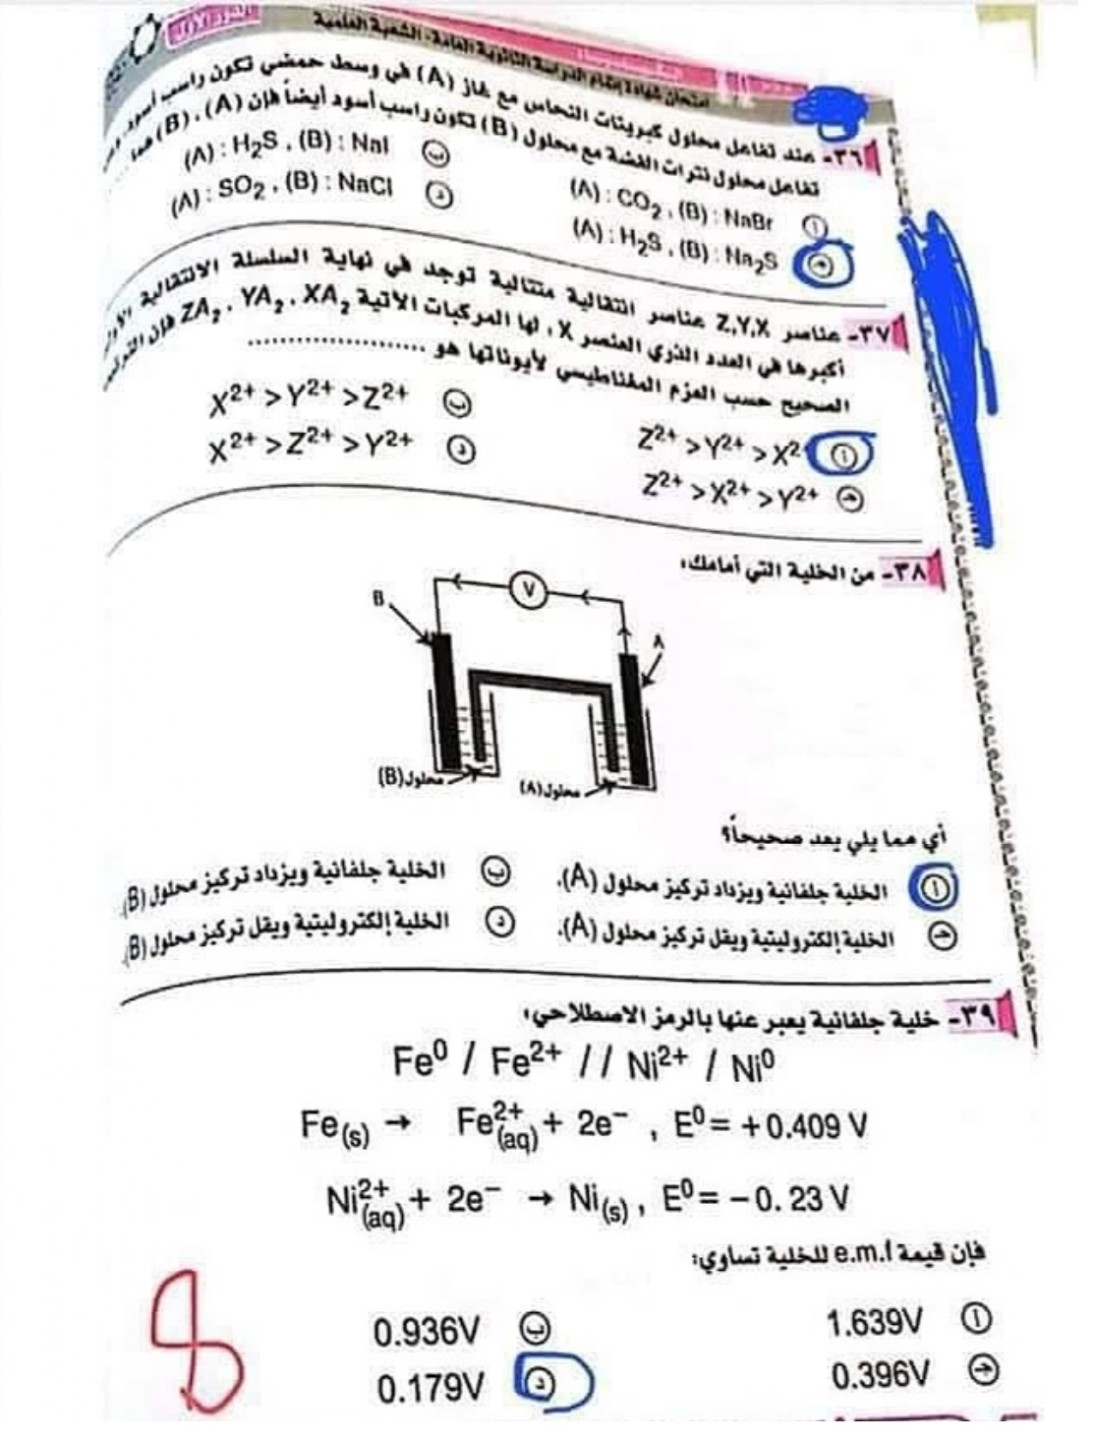 الدور الأول
امتحان شهادة إتمام الدراسة الثانوية العامة - الشعبة العلمية
٣٦- عند تفاعل محلول كبريتات النحاس مع غاز (A) في وسط حمضي تكون راسب أسود
تفاعل محلول نترات الفضة مع محلول (B) تكون راسب أسود أيضاً فإن (A) ، (B) هما
أ (A) : CO₂ , (B) : NaBr
ب (A) : H₂S , (B) : NaI
جـ (A) : H₂S , (B) : Na₂S
د (A) : SO₂ , (B) : NaCl
٣٧- عناصر Z,Y,X عناصر انتقالية متتالية توجد في نهاية السلسلة الانتقالية
أكبرها في العدد الذري العنصر X ، لها المركبات الآتية ZA₂ , YA₂ , XA₂ فإن
الصحيح حسب العزم المغناطيسي لأيوناتها هو ........................
أ Z²⁺ > Y²⁺ > X²
ب X²⁺ > Y²⁺ > Z²⁺
جـ Z²⁺ > X²⁺ > Y²⁺
د X²⁺ > Z²⁺ > Y²⁺
٣٨- من الخلية التي أمامك:
V
B
A
محلول (B)
محلول (A)
أي مما يلي يعد صحيحاً؟
أ الخلية جلفانية ويزداد تركيز محلول (A).
ب الخلية جلفانية ويزداد تركيز محلول (B).
جـ الخلية إلكتروليتية ويقل تركيز محلول (A).
د الخلية إلكتروليتية ويقل تركيز محلول (B).
٣٩- خلية جلفانية يعبر عنها بالرمز الاصطلاحي:
Fe⁰ / Fe²⁺ // Ni²⁺ / Ni⁰
Fe(s) → Fe²⁺(aq) + 2e⁻ , E⁰ = +0.409 V
Ni²⁺(aq) + 2e⁻ → Ni(s) , E⁰ = -0.23 V
فإن قيمة e.m.f للخلية تساوي:
أ 1.639V
ب 0.936V
جـ 0.396V
د 0.179V